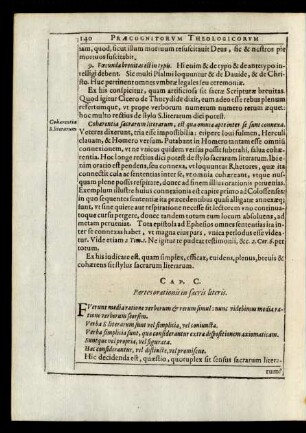 140 PRÆCOGNITORVM THEOLOGICORVM
iam, quod, sicut illum mortuum resuscitavit Deus, sic & nostros pie
mortuos suscitabit.
9. Fœcunda brevitas est in typis. Hi enim & de typo & de antitypo in-
telligi debent. Sic multi Psalmi loquuntur & de Davide, & de Chri-
sto. Huc pertinent omnes umbræ legales seu ceremoniæ.
Ex his conspicitur, quam artificiosa sit sacræ Scripturæ brevitas.
Quod igitur Cicero de Thucydide dixit, eum adeo esse rebus plenum
refertumque, ut prope verborum numerum numero rerum æquet:
hoc multo rectius de stylo S. literarum dici potest.
Cohærentia
S. literarum
Cohærentia sacrarum literarum, est qua omnia apta inter se sunt connexa.
Veteres dixerunt, tria esse impossibilia: eripere Iovi fulmen, Herculi
clavam, & Homero versum. Putabant in Homero tantam esse omniū
connexionem, ut ne vnicus quidem versus possit subtrahi, salua cohæ-
rentia. Hoc longe rectius dici potest de stylo sacrarum literarum. Ibi e-
nim oratio est pendens, seu connexa, vt loquuntur Rhetores, quæ ita
connectit cola ac sententias inter se, vt omnia cohæreant, vtque nus-
quam plene possis respirare, donec ad finem illius orationis peruenias.
Exemplum illustre huius connexionis est capite primo ad Colossenses:
in quo sequentes sententiæ antecedentes ita excipiunt atque conse-
quunt, vt sine quiete aut respiratione necesse sit lectorem vno continuo-
que cursu pergere, donec tandem totum eum locum absoluerit, ad
metam perueniat. Tota epistola ad Ephesios omnes sententias ita in-
ter se connexas habet, vt magna eius pars, vnica periodus esse videa-
tur. Vide etiam 2 Tim. 1. Ne igitur te pudeat testimonii, &c. 2. Cor. 6. per
totum.
Ex his iudicare est, quam simplex, efficax, euidens, plenus, breuis &
cohærens sit stylus sacrarum literarum.
CAP. C.
Partes orationis in sacris literis.
FVerunt media ratione verborum & rerum simul: nunc videbimus media ra-
tione verborum seorsim.
Verba S. literarum sunt vel simplicia, vel coniuncta.
Verba simplicia sunt, quæ considerantur extra dispositionem axiomaticam.
Suntque vel propria, vel figurata.
Hæc considerantur, vel distincte, vel promiscue.
Hic decidenda est, quæstio, quotuplex sit sensus sacrarum litera-
rum?